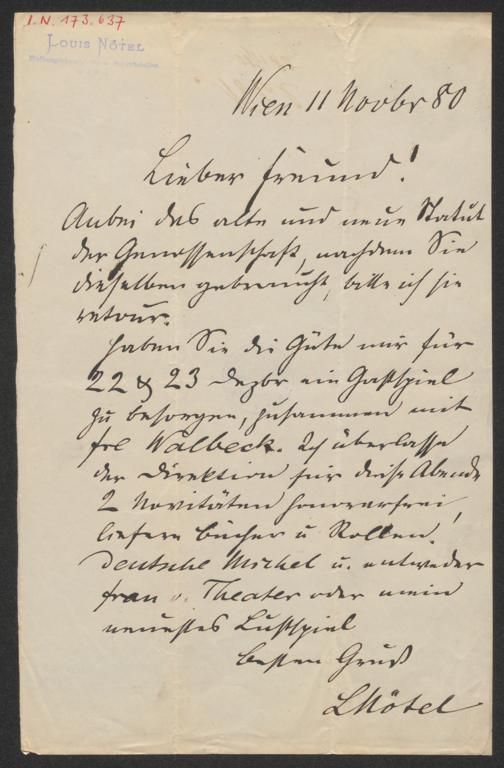 I.N. 173.637
LOUIS NÖTEL
Wien 11 Novbr 80
Lieber Freund!
Anbei das alte und neue Statut
der Genossenschaft, nachdem Sie
dieselben gebraucht, bitte ich sie
retour.
Haben Sie die Güte mir für
22 & 23 Dezbr ein Gastspiel
zu besorgen, zusammen mit
Frl Walbeck. Ich überlasse
der Direktion für diese Abende
2 Novitäten honorarfrei,
liefern Bücher u Rollen!
Deutsche Michel u. entweder
Frau v. Theater oder mein
neuestes Lustspiel
Besten Gruß
LNötel